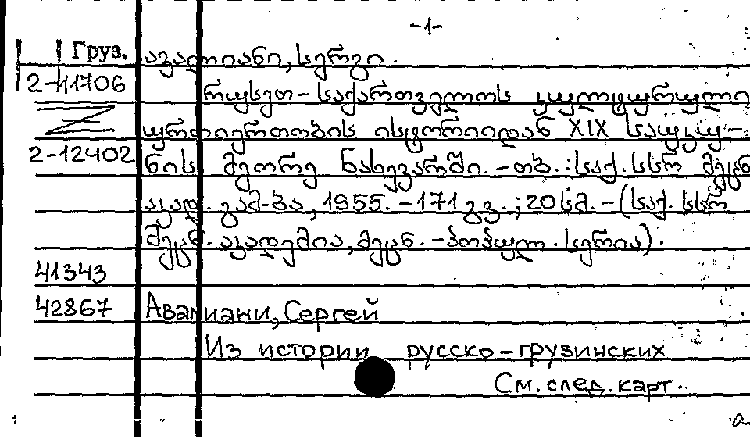 -1-
Груз. ავალიანი, სერგი.
2-41706 რუსეთ-საქართველოს კულტურული
ურთიერთობის ისტორიიდან XIX საუკუ-
2-12402 ნის მეორე ნახევარში. -თბ.: საქ. სსრ მეცნ.
აკად. გამ-ბა, 1955. -171 გვ.; 20 სმ. -(საქ. სსრ
მეცნ. აკადემია, მეცნ. -პოპულ. სერია).
41343
42867 Авалиани, Сергей
Из истории русско-грузинских
См. след. карт.